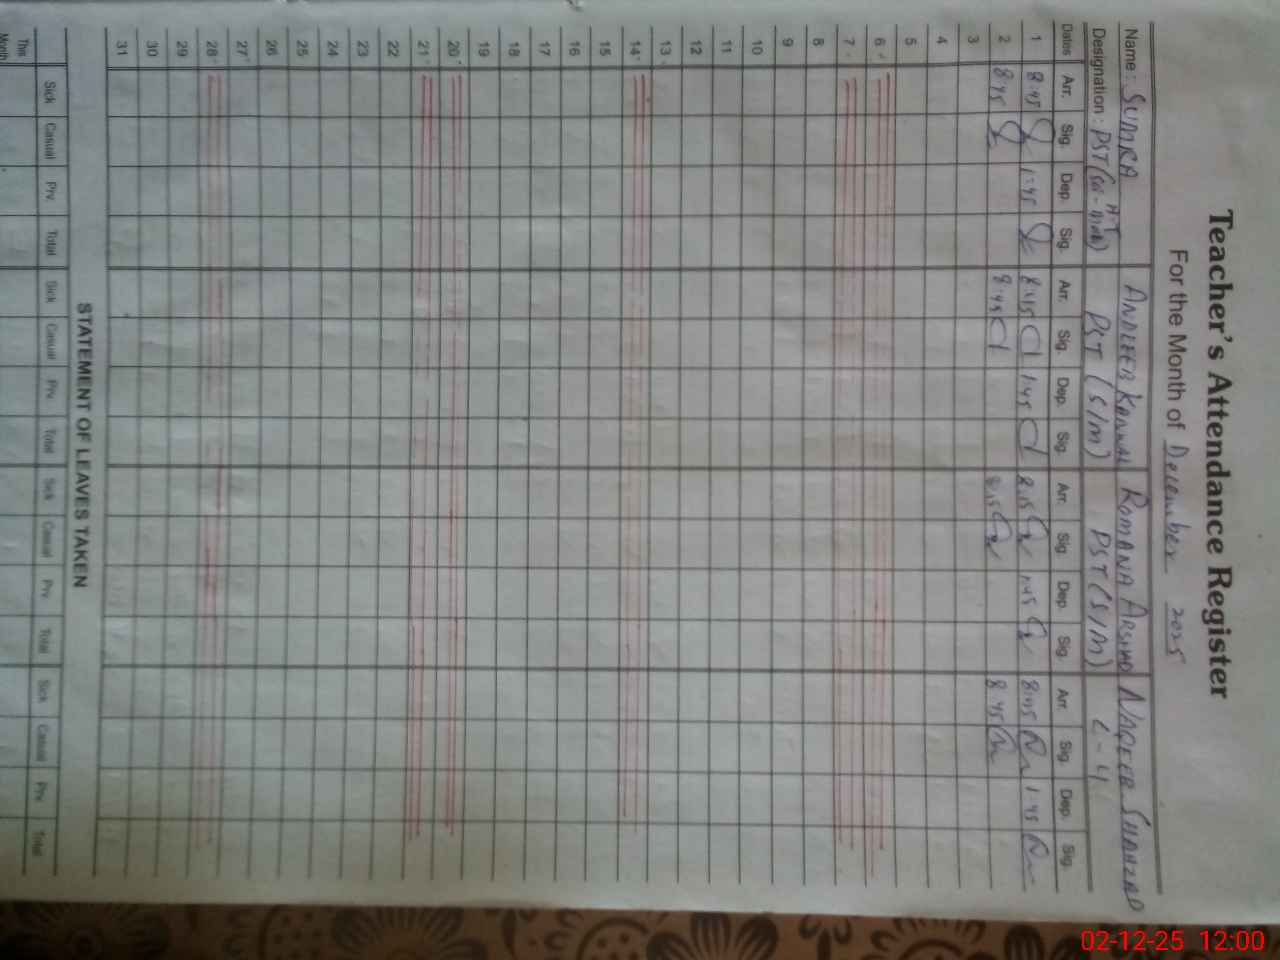 Teacher's Attendance Register
For the Month of December 2025
Name: SUMRA ANDLEEB KANWAL ROMANA ARSHAD NAQEEB SHAHZAD
Designation: PST PST (S/M) PST (S/M) C-4
Dates Arr. Sig. Dep. Sig. Arr. Sig. Dep. Sig. Arr. Sig. Dep. Sig. Arr. Sig. Dep. Sig.
1 8:45 1:45 8:45 1:45 8:45 1:45 8:45 1:45
2 8:45 8:45 8:45 8:45
3
4
5
6
7
8
9
10
11
12
13
14
15
16
17
18
19
20
21
22
23
24
25
26
27
28
29
30
31
STATEMENT OF LEAVES TAKEN
Sick Casual Prv. Total Sick Casual Prv. Total Sick Casual Prv. Total Sick Casual Prv. Total
This Month
02-12-25 12:00